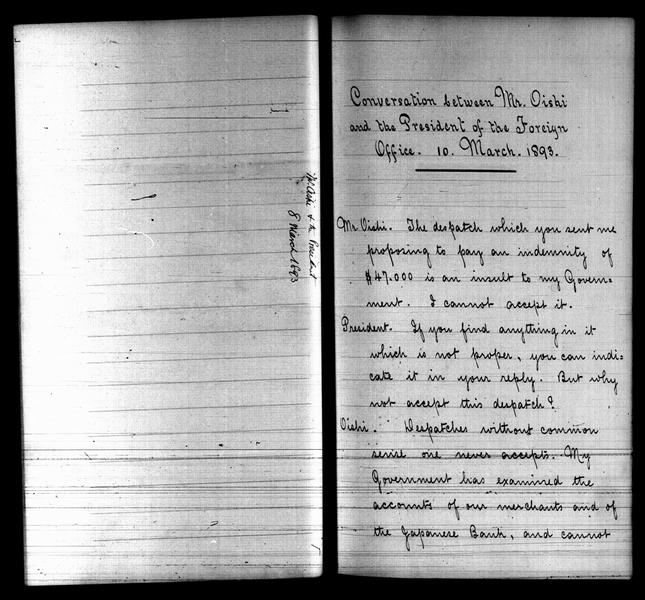 Mr Oishi & the President
8 March 1893
Conversation between Mr. Oishi
and the President of the Foreign
Office. 10. March. 1893.
Mr. Oishi. The despatch which you sent me
proposing to pay an indemnity of
$47.000 is an insult to my Govern-
ment. I cannot accept it.
President. If you find anything in it
which is not proper, you can indi-
cate it in your reply. But why
not accept this despatch?
Oishi. Despatches without common
sense one never accepts. My
Government has examined the
accounts of our merchants and of
the Japanese Bank, and cannot